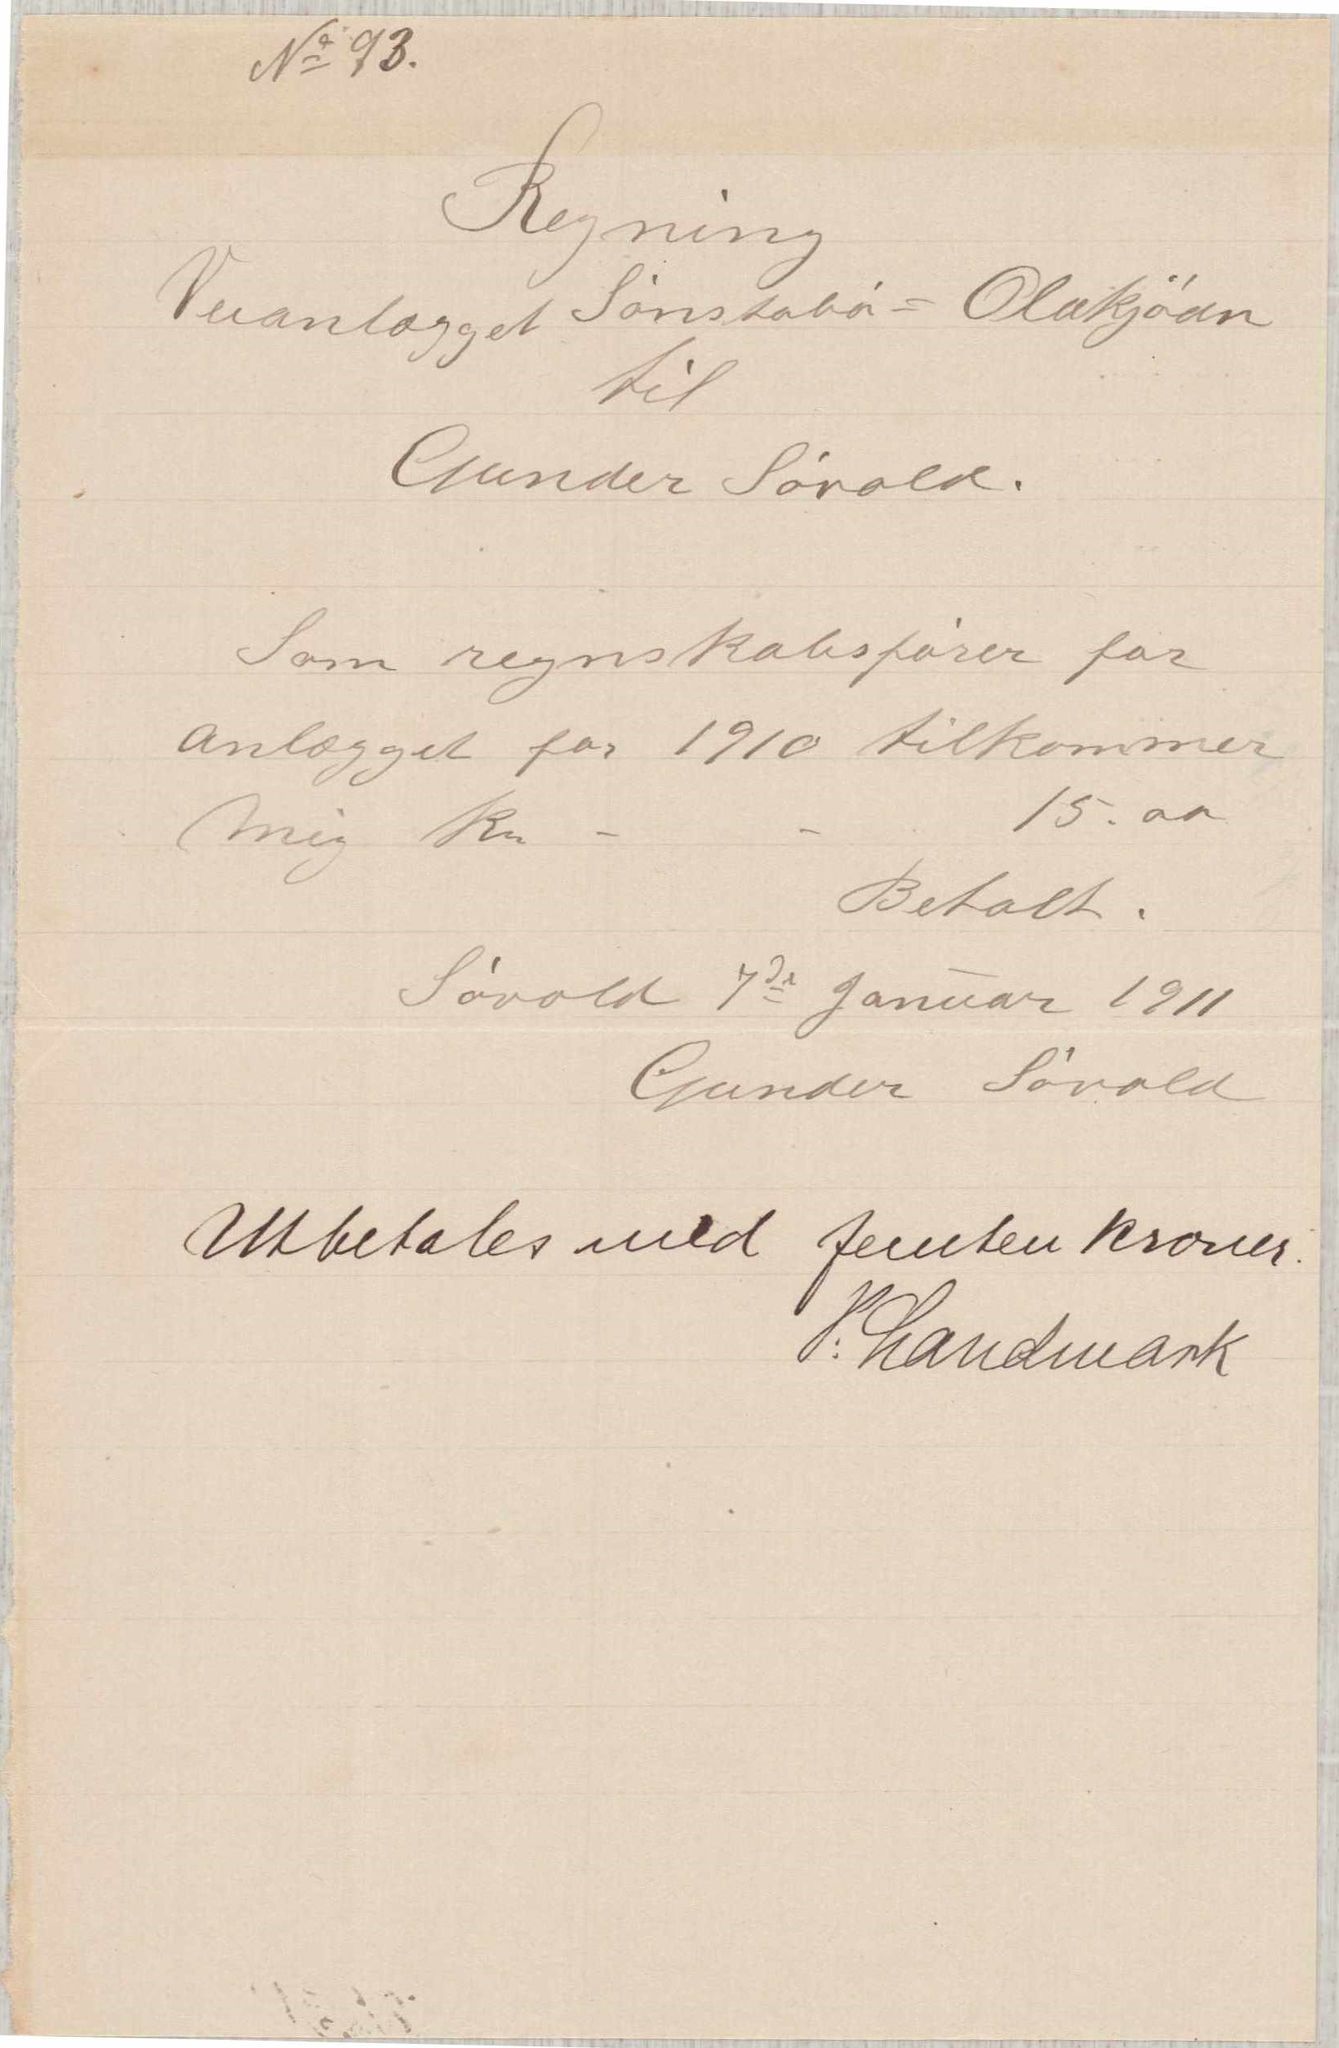 No 93.
Regning
Veianlægget Sönstabö = Olakjödn
til
Gunder Sövold.
Som regnskabsförer for
anlægget for 1910 tilkommer
mig Kr - - 15.00
Betalt.
Sövold 7de Januar 1911
Gunder Sövold
Utbetales med femten kroner.
P. Landmark